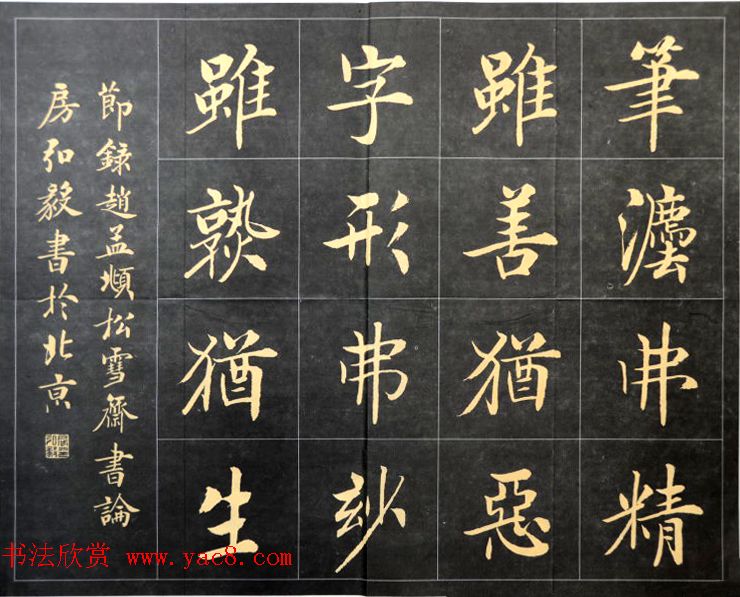 筆灋弗精
雖善猶惡
字形弗玅
雖熟猶生
節錄趙孟頫松雪齋書論
房弘毅書於北亰
书法欣赏 www.yac8.com